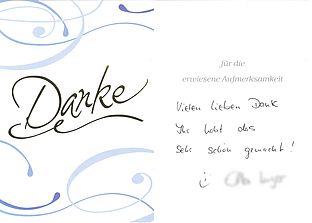 Danke
für die
erwiesene Aufmerksamkeit
Vielen lieben Dank
Ihr habt das
sehr schön gemacht!